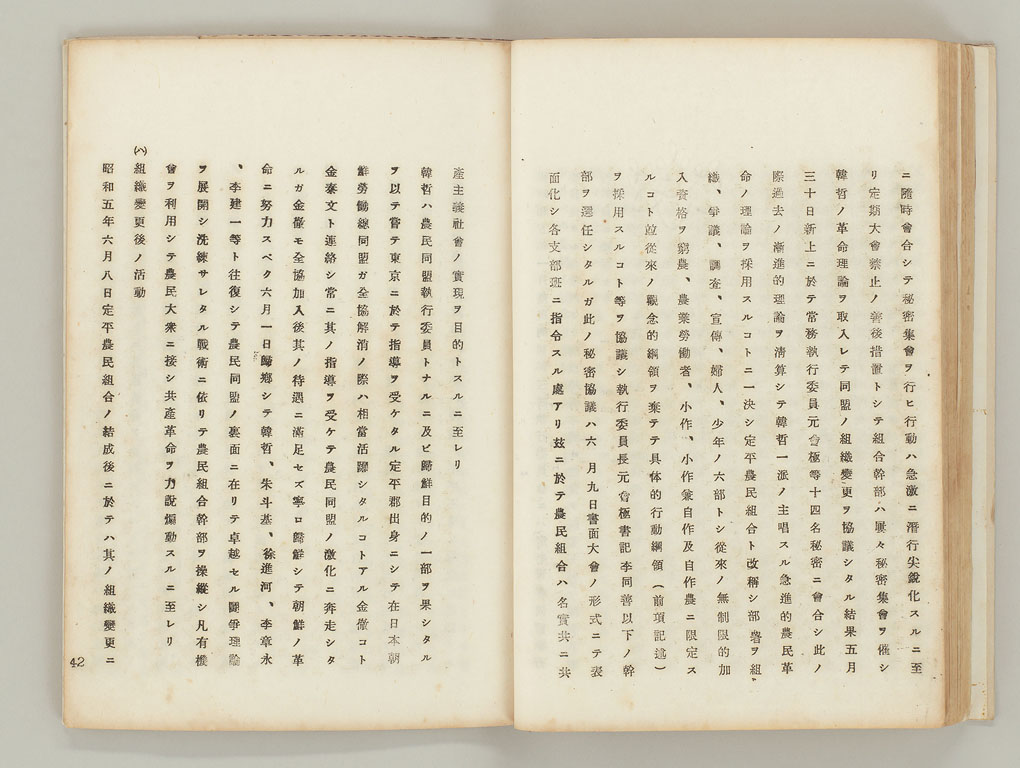 ニ隨時會合シテ秘密集會ヲ行ヒ行動ハ急激ニ潜行尖鋭化スルニ至
リ定期大會禁止ノ善後措置トシテ組合幹部ハ屡々秘密集會ヲ催シ
韓哲ノ革命理論ヲ取入レテ同盟ノ組織變更ヲ協議シタル結果五月
三十日新上ニ於テ常務執行委員元會極等十四名秘密ニ會合シ此ノ
際過去ノ漸進的理論ヲ淸算シテ韓哲一派ノ主唱スル急進的農民革
命ノ理論ヲ採用スルコトニ一決シ定平農民組合ト改稱シ部署ヲ組
織、爭議、調査、宣傳、婦人、少年ノ六部トシ從來ノ無制限的加
入資格ヲ窮農、農業勞働者、小作、小作兼自作及自作農ニ限定ス
ルコト竝從來ノ觀念的綱領ヲ棄テテ具体的行動綱領(前項記述)
ヲ採用スルコト等ヲ協議シ執行委員長元會極書記李同善以下ノ幹
部ヲ選任シタルガ此ノ秘密協議ハ六月九日書面大會ノ形式ニテ表
面化シ各支部班ニ指令スル處アリ玆ニ於テ農民組合ハ名實共ニ共
産主義社會ノ實現ヲ目的トスルニ至レリ
韓哲ハ農民同盟執行委員トナルニ及ビ歸鮮目的ノ一部ヲ果シタル
ヲ以テ嘗テ東京ニ於テ指導ヲ受ケタル定平郡出身ニシテ在日本朝
鮮勞働總同盟ガ全協解消ノ際ハ相當活躍シタルコトアル金儆コト
金泰文ト連絡シ常ニ其ノ指導ヲ受ケテ農民同盟ノ激化ニ奔走シタ
ルガ金儆モ全協加入後其ノ待遇ニ滿足セズ寧ロ歸鮮シテ朝鮮ノ革
命ニ努力スベク六月一日歸鄕シテ韓哲、朱斗基、徐進河、李章永
、李建一等ト往復シテ農民同盟ノ裏面ニ在リテ卓越セル鬪爭理論
ヲ展開シ洗練サレタル戰術ニ依リテ農民組合幹部ヲ操縱シ凡有機
會ヲ利用シテ農民大衆ニ接シ共産革命ヲ力說煽動スルニ至レリ
(ハ)組織變更後ノ活動
昭和五年六月八日定平農民組合ノ結成後ニ於テハ其ノ組織變更ニ
42